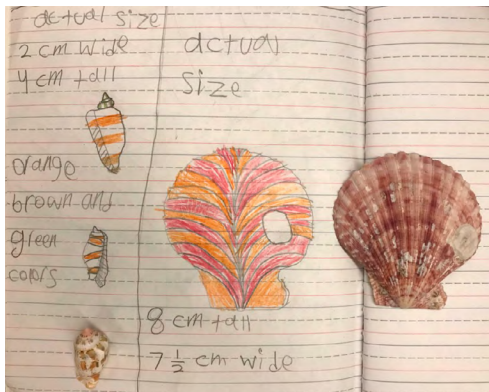 actual size
2 cm wide
4 cm tall
orange
brown and
green
colors
actual
size
8 cm tall
7 1/2 cm wide